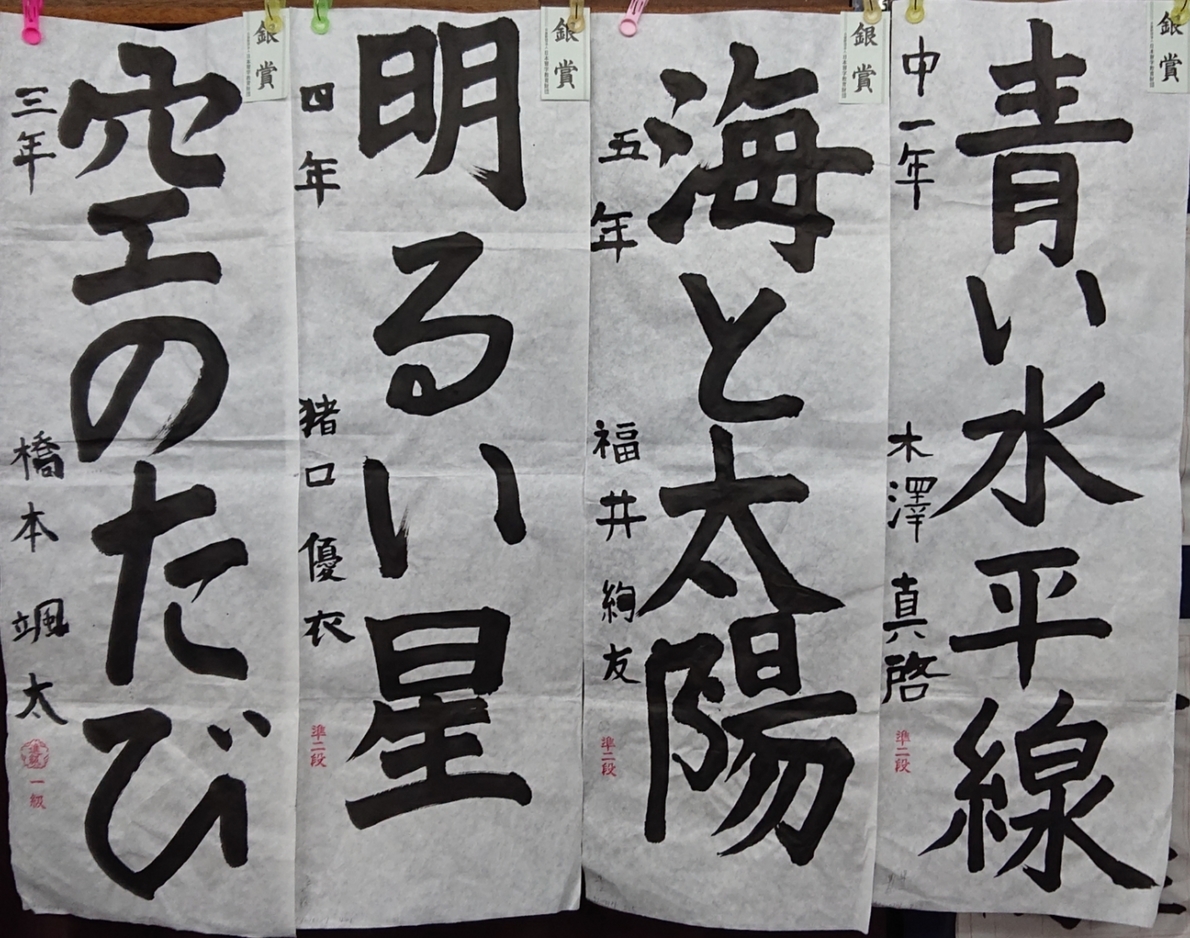 銀賞
青い水平線
中一年 木澤真啓
準二段
銀賞
海と太陽
五年 福井絢友
準二段
銀賞
明るい星
四年 猪口優衣
準二段
銀賞
空のたび
三年 橋本颯太
一級